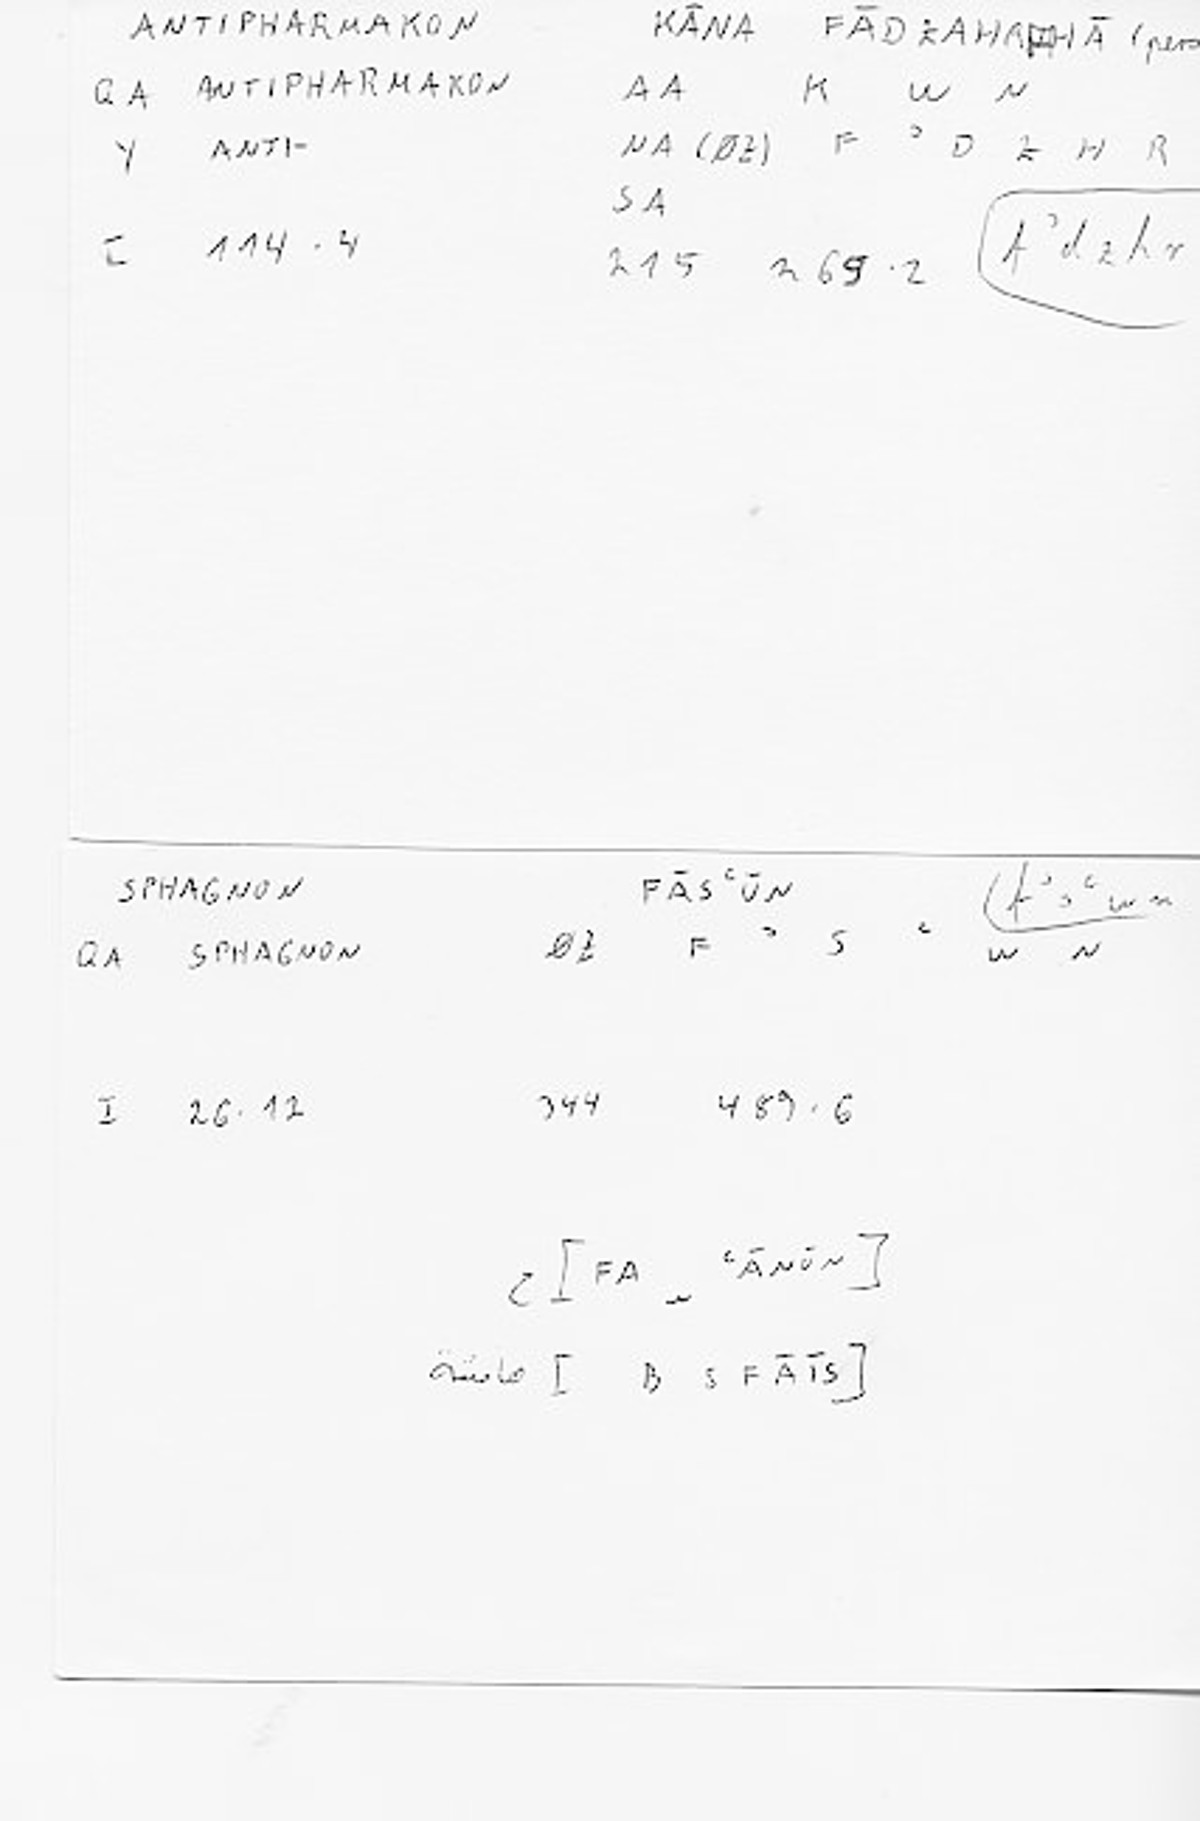 ANTIPHARMAKON KĀNA FĀDZAHR HĀ (pers
QA ANTIPHARMAKON AA K W N
Y ANTI- NA (ØZ) F ʾ D Z H R
SA
I 114.4 215 269.2 fʾdzhr
SPHAGNON FĀSʿŪN (fʾsʿwn
QA SPHAGNON ØZ F ʾ S ʿ W N
I 26.12 344 489.6
[FA ʿĀNŪN]
[ B S F Ā Ī S]